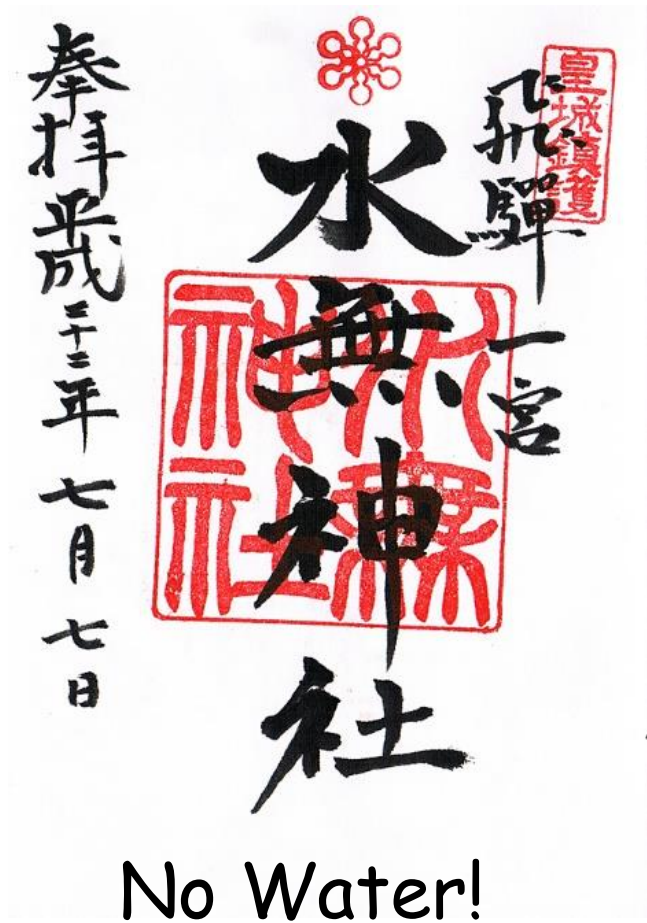 皇城鎮護
飛驒一宮
水無神社
水無神社
奉拝 平成二十二年 七月 七日
No Water!